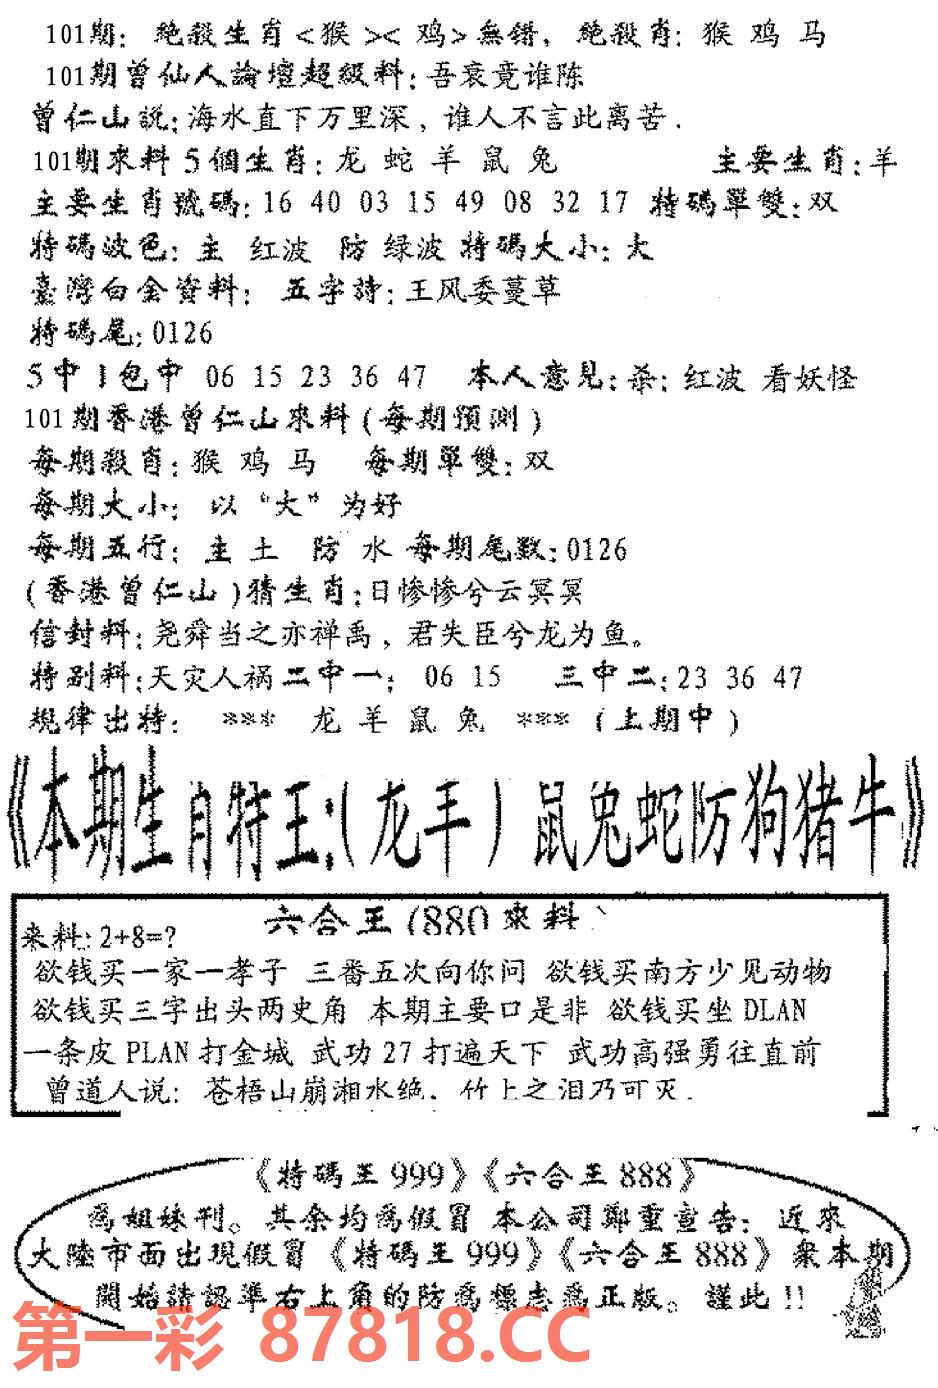 101期: 絶殺生肖<猴><鸡>無错, 絶殺肖: 猴 鸡 马
101期曾仙人論壇超級料:吾衰竟谁陈
曾仁山説:海水直下万里深, 谁人不言此离苦.
101期來料5個生肖:龙 蛇 羊 鼠 兔 主要生肖:羊
主要生肖號碼:16 40 03 15 49 08 32 17 特碼單雙:双
特碼波色:主 红波 防 绿波 特碼大小:大
臺灣白金資料: 五字詩:王风委蔓草
特碼尾:0126
5中1包中 06 15 23 36 47 本人意見:杀:红波 看妖怪
101期香港曾仁山來料(每期預測)
每期殺肖:猴 鸡 马 每期單雙:双
每期大小: 以“大”为好
每期五行: 主 土 防 水 每期尾数:0126
(香港曾仁山)猜生肖:日惨惨兮云冥冥
信封料:尧舜当之亦禅禹, 君失臣兮龙为鱼。
特别料:天灾人祸二中一: 06 15 三中二:23 36 47
規律出特: *** 龙 羊 鼠 兔 *** (上期中)
《本期生肖特王:(龙羊)鼠兔蛇防狗猪牛》
六合王(880來料)
来料:2+8=?
欲钱买一家一孝子 三番五次向你问 欲钱买南方少见动物
欲钱买三字出头两史角 本期主要口是非 欲钱买坐DLAN
一条皮PLAN打金城 武功27打遍天下 武功高强勇往直前
曾道人说: 苍梧山崩湘水绝. 竹上之泪乃可灭.
《特碼王999》《六合王888》
為姐妹刊。其余均為假冒 本公司鄭重宣告: 近來
大陸市面出現假冒《特碼王999》《六合王888》衆本期
開始請認準右上角的防為標志為正版。謹此!!
第一彩 87818.CC